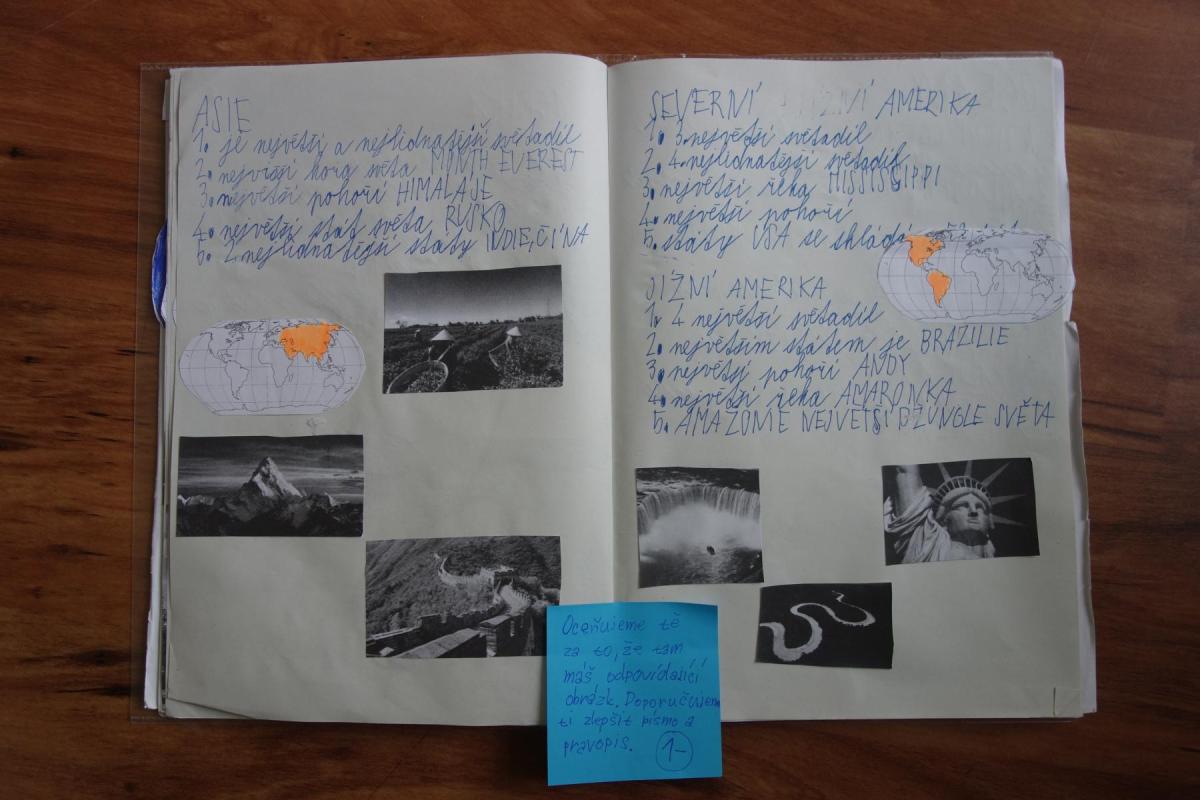 ASIE
1. je největší a nejlidnatější světadíl
2. nejvršší hora světa MONTH EVEREST
3. největší pohoří HIMALAJE
4. největší stát světa RUSKO
5. 2. nejlidnatější státy INDIE, ČÍNA
SEVERNÍ AMERIKA
1. 3. největší světadíl
2. 4. nejlidnatější světadíl
3. největší řeka MISSISSIPPI
4. největší pohoří
5. státy USA se skládá
JIŽNÍ AMERIKA
1. 4 největší světadíl
2. největším státem je BRAZILIE
3. největší pohoří ANDY
4. největší řeka AMARONKA
5. AMAZONIE NEJVETŠI DŽUNGLE SVĚTA
Oceňujeme tě
za to, že tam
máš odpovídající
obrázk. Doporučujeme
ti zlepšit písmo a
pravopis. 1-